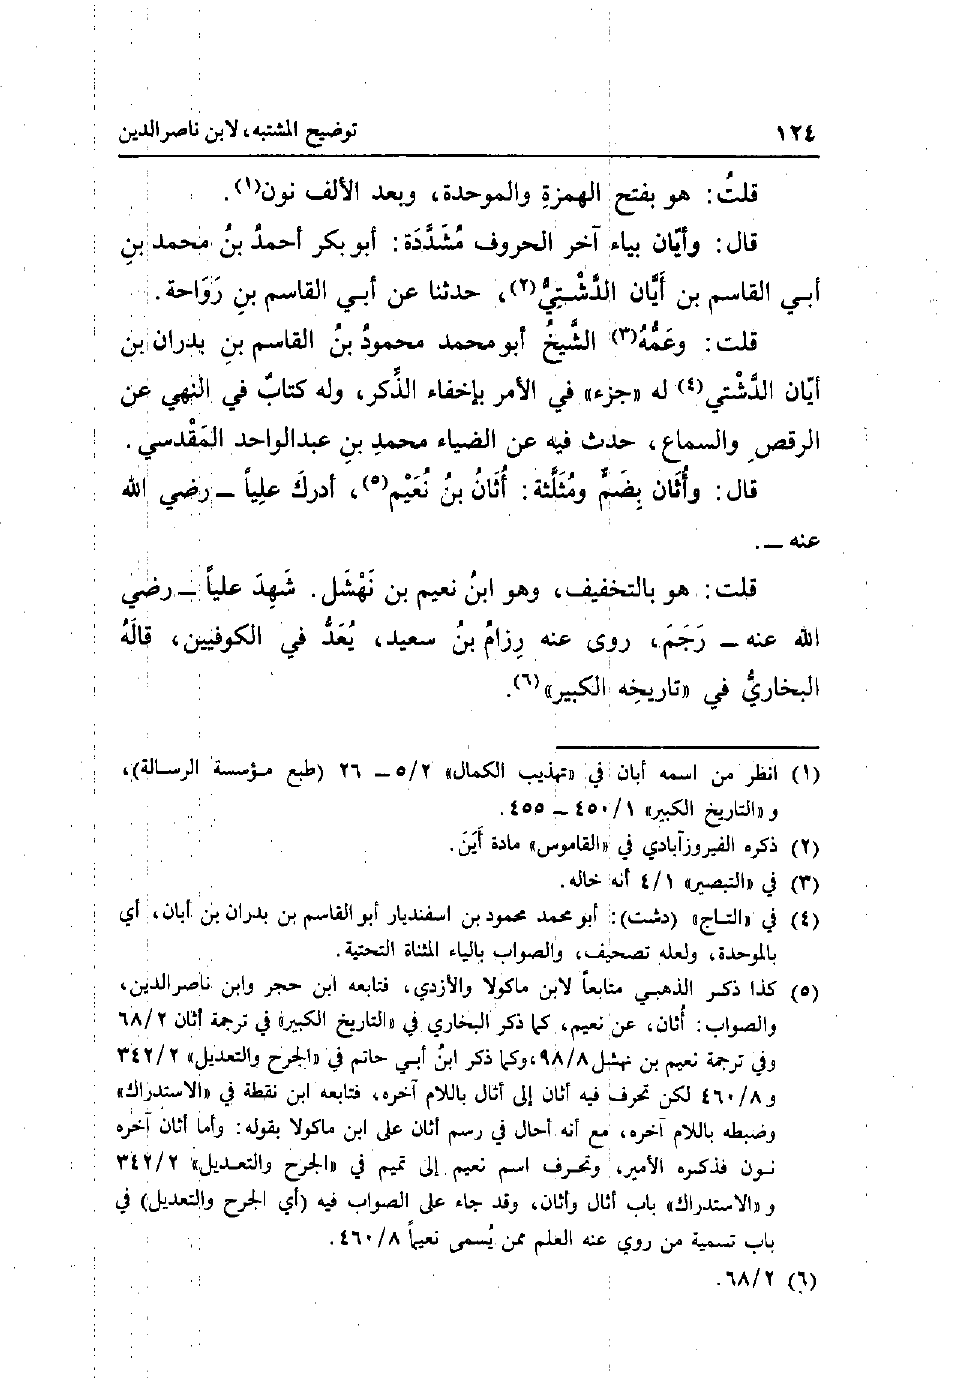 ١٢٤ توضيح المشتبه، لابن ناصرالدين
قلتُ: هو بفتح الهمزةِ والموحدة، وبعد الألف نون(١).
قال: وأيّان بياء آخر الحروف مُشَدَّدَة: أبو بكر أحمدُ بنُ محمد بنِ
أبي القاسم بن أَيَّان الدَّشْتِيُّ(٢)، حدثنا عن أبي القاسم بنِ رَوَاحة.
قلت: وعَمُّهُ(٣) الشَّيخُ أبو محمد محمودُ بنُ القاسم بنِ بدران بن
أيّان الدَّشْتي(٤) له «جزء» في الأمر بإخفاء الذِّكر، وله كتابٌ في النهي عن
الرقصِ والسماع، حدث فيه عن الضياء محمدِ بنِ عبدالواحد المَقْدسي.
قال: وأُثَان بِضَمٍّ ومُثَلَّثة: أُثَانُ بنُ نُعَيْم(٥)، أدركَ علِياً ــ رضي الله
عنه ــ.
قلت: هو بالتخفيف، وهو ابنُ نعيم بن نَهْشَل. شَهِدَ علياً ــ رضي
الله عنه ــ رَجَمَ، روى عنه رِزامُ بنُ سعيد، يُعَدُّ في الكوفيين، قالَهُ
البخاريُّ في «تاريخِه الكبير»(٦).
(١) انظر من اسمه أبان في «تهذيب الكمال» ٢/٥ــ ٢٦ (طبع مؤسسة الرسالة)،
و «التاريخ الكبير» ١/٤٥٠ ــ ٤٥٥.
(٢) ذكره الفيروزآبادي في «القاموس» مادة أَيَنَ.
(٣) في «التبصير» ١/٤ أنه خاله.
(٤) في «التاج» (دشت): أبو محمد محمود بن اسفنديار أبو القاسم بن بدران بن أبان، أي
بالموحدة، ولعله تصحيف، والصواب بالياء المثناة التحتية.
(٥) كذا ذكر الذهبي متابعاً لابن ماكولا والأزدي، فتابعه ابن حجر وابن ناصرالدين،
والصواب: أُثان، عن نعيم، كما ذكر البخاري في «التاريخ الكبير» في ترجمة أثان ٢/٦٨
وفي ترجمة نعيم بن نهشل ٨/٩٨، وكما ذكر ابنُ أبي حاتم في «الجرح والتعديل» ٢/٣٤٢
و ٨/٤٦٠ لكن تحرف فيه أثان إلى أثال باللام آخره، فتابعه ابن نقطة في «الاستدراك»
وضبطه باللام آخره، مع أنه أحال في رسم أثان على ابن ماكولا بقوله: وأما أثان آخره
نون فذكره الأمير، وتحرف اسم نعيم إلى تميم في «الجرح والتعديل» ٢/٣٤٢
و «الاستدراك» باب أثال وأثان، وقد جاء على الصواب فيه (أي الجرح والتعديل) في
باب تسمية من روي عنه العلم ممن يُسمى نعيماً ٨/٤٦٠.
(٦) ٢/٦٨.